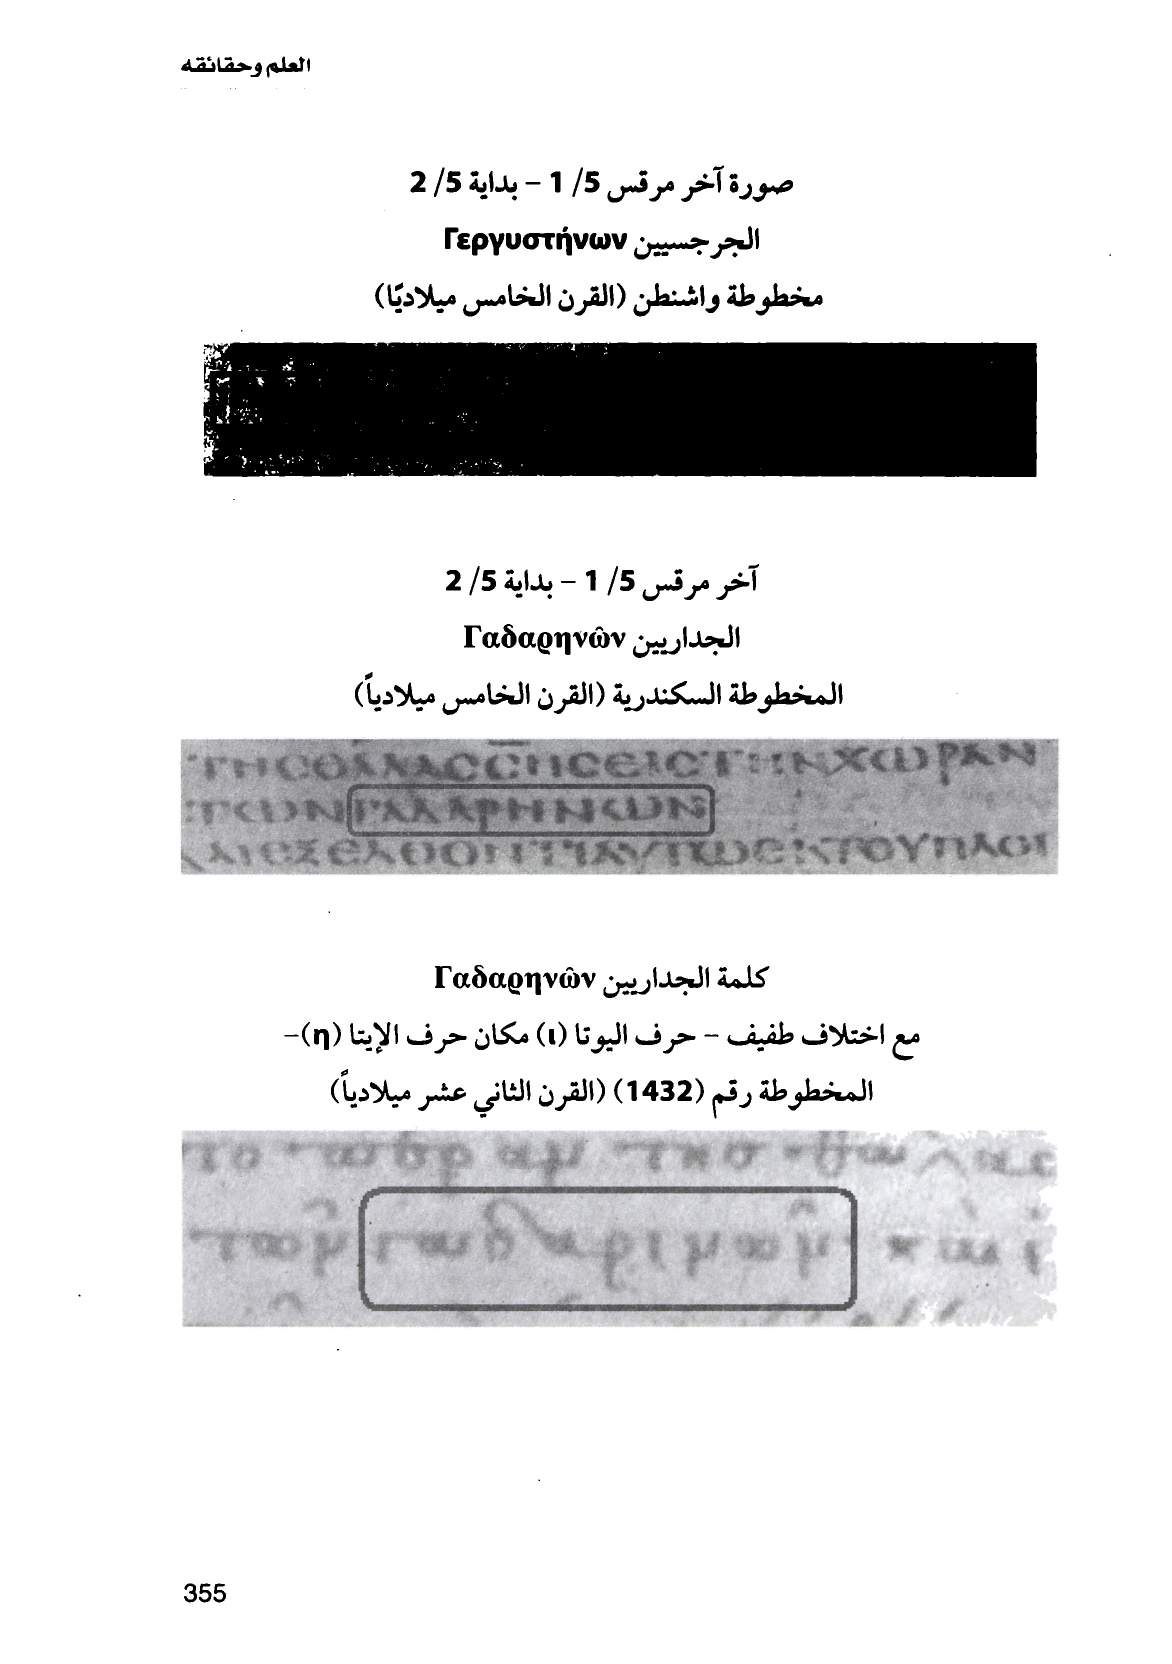 العلم وحقائقه
صورة آخر مرقس 5/ 1 – بداية 5/ 2
الجرجسيين Γεργυστήνων
مخطوطة واشنطن (القرن الخامس ميلاديًا)
آخر مرقس 5/ 1 – بداية 5/ 2
الجداريين Γαδαρηνῶν
المخطوطة السكندرية (القرن الخامس ميلادياً)
ΤΗϹΘΑΛΑϹϹΗϹΕΙϹΤΗΝΧΩΡΑΝ
ΤΩΝΓΑΔΑΡΗΝΩΝ
ΕΞΕΛΘΟΝΤΙΑΥΤΩΕΚΤΟΥΠΛΟΙ
كلمة الجداريين Γαδαρηνῶν
مع اختلاف طفيف – حرف اليوتا (ι) مكان حرف الإيتا (η)–
المخطوطة رقم (1432) (القرن الثاني عشر ميلادياً)
355